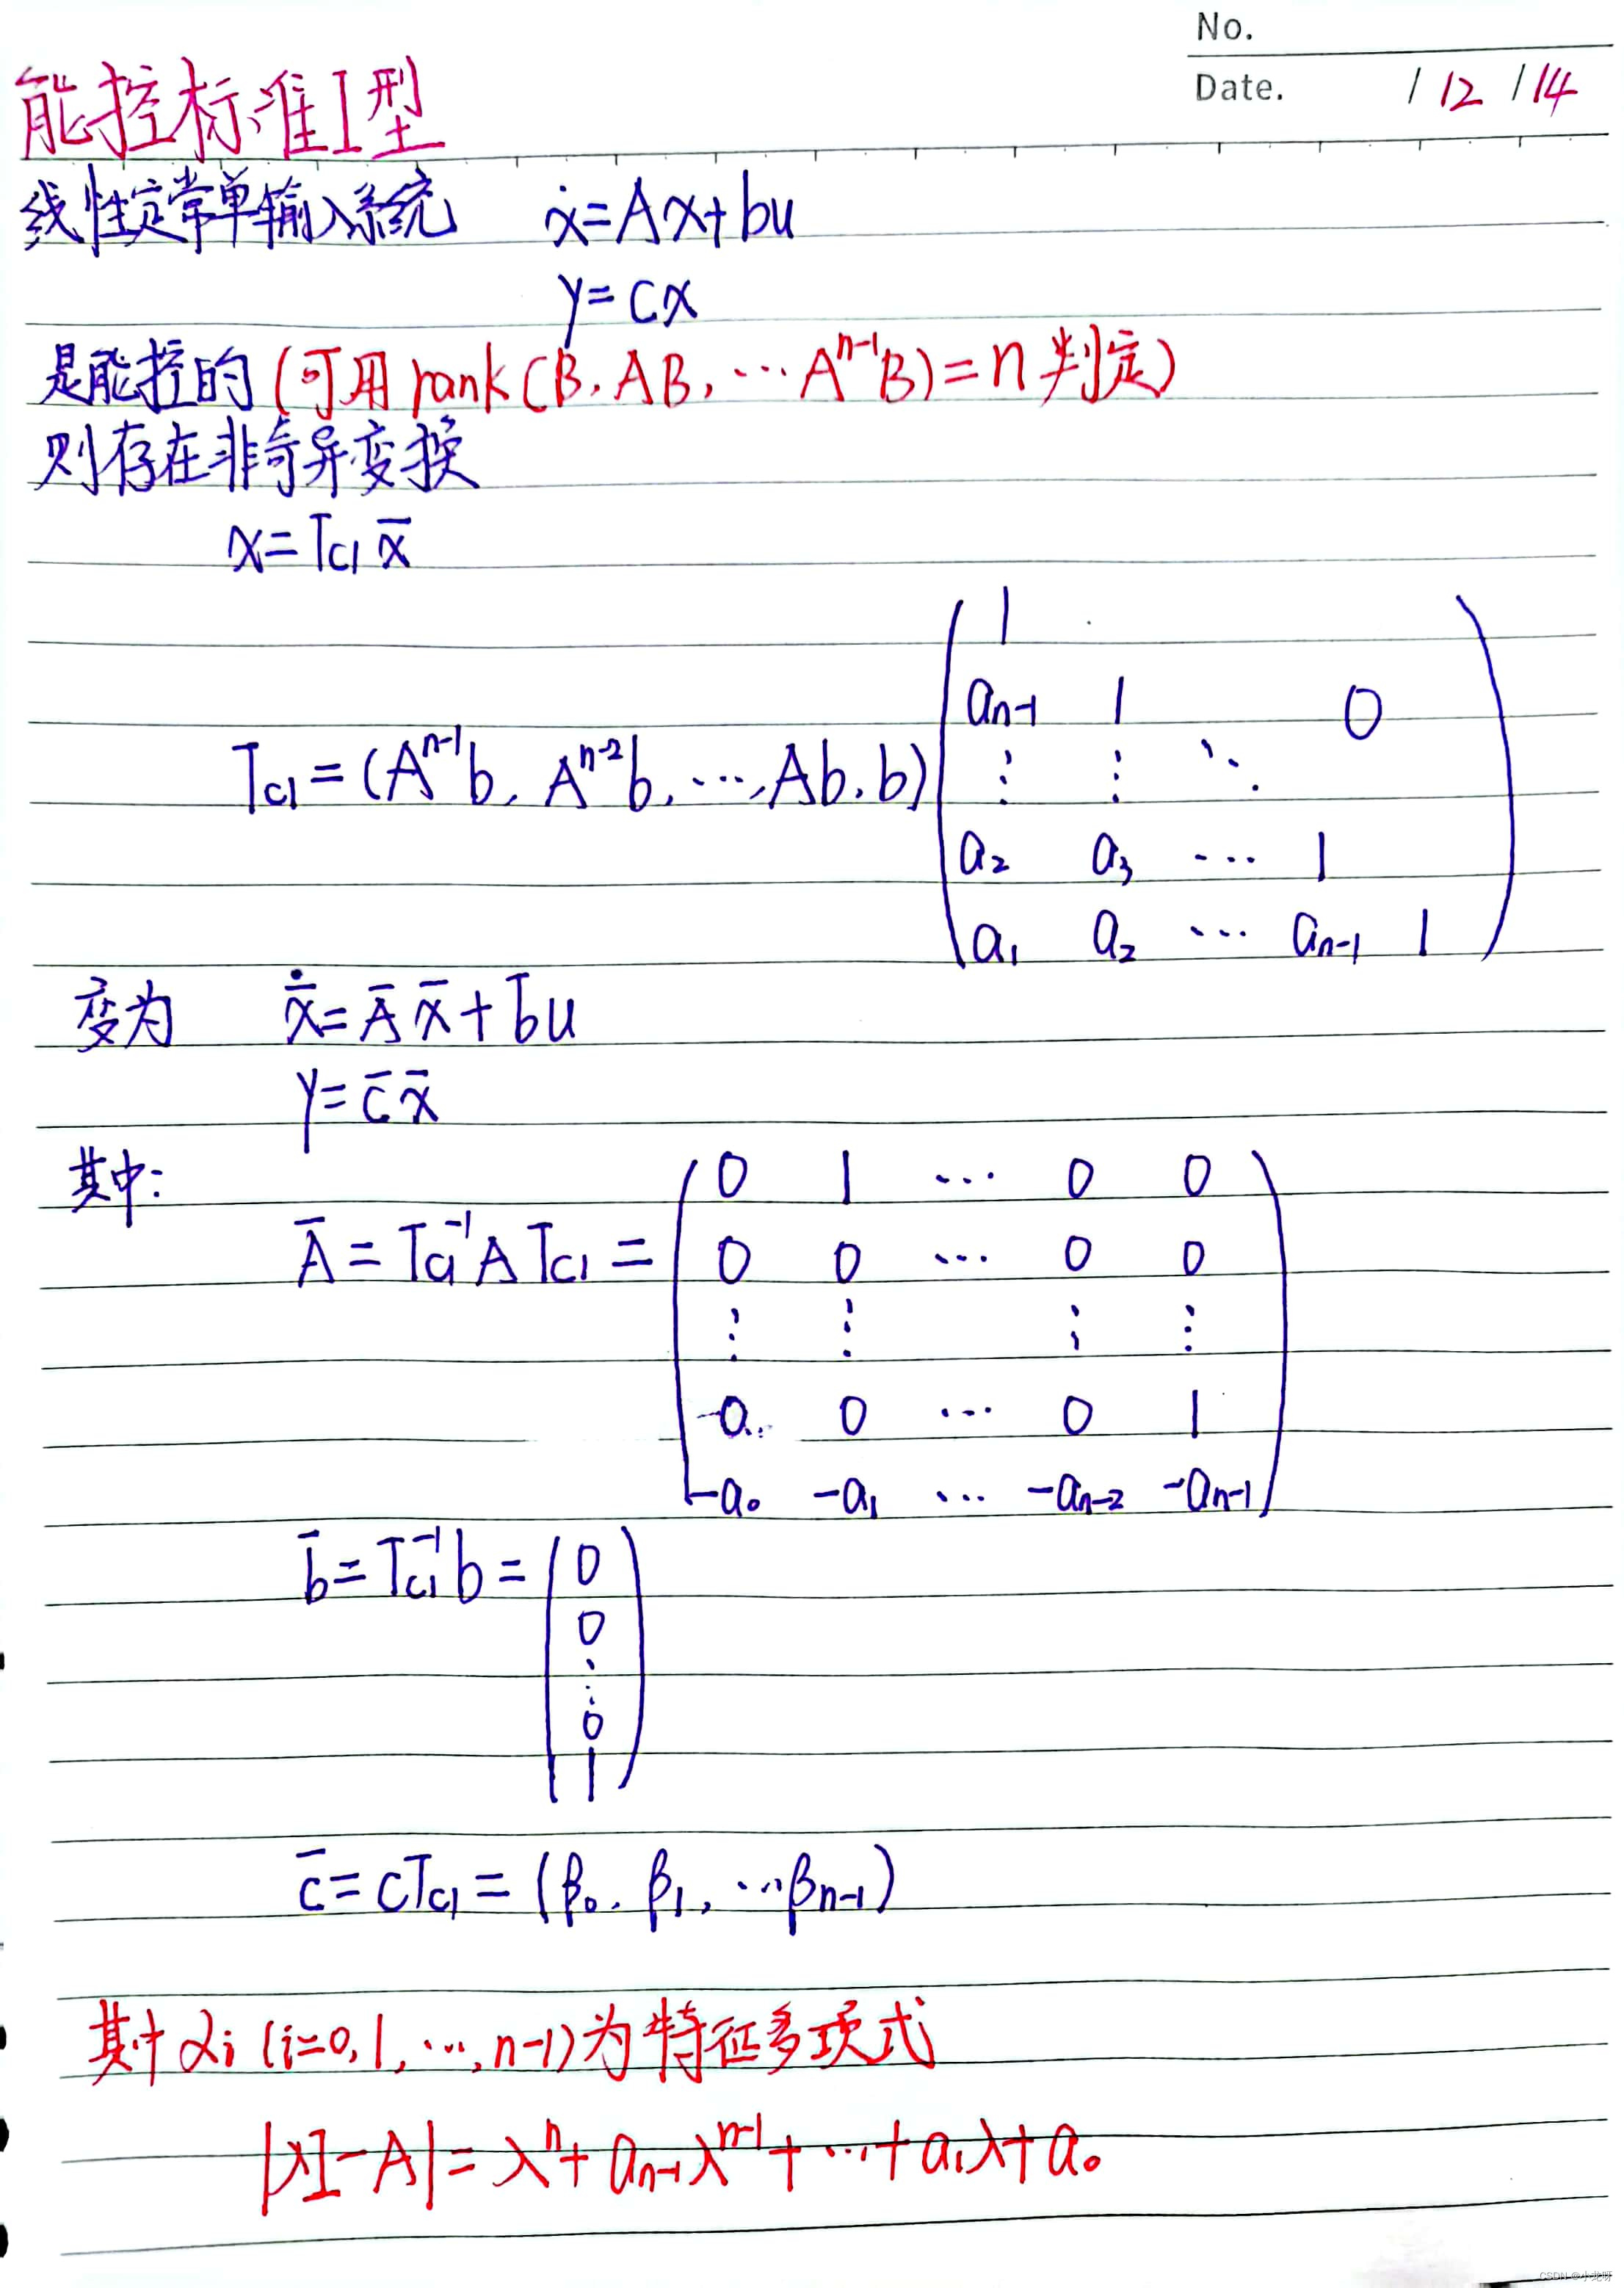 No.
Date. / 12 / 14
能控标准I型
线性定常单输入系统 ẋ=Ax+bu
y=cx
是能控的(可用rank(B,AB,…Aⁿ⁻¹B)=n判定)
则存在非奇异变换
x=Tc1 x̄
Tc1=(Aⁿ⁻¹b, Aⁿ⁻²b, …, Ab, b)
1
aₙ₋₁ 1 0
⋮ ⋮ ⋱
a₂ a₃ … 1
a₁ a₂ … aₙ₋₁ 1
变为 x̄̇=Āx̄+b̄u
y=c̄x̄
其中:
Ā=Tc1⁻¹ATc1=
0 1 … 0 0
0 0 … 0 0
⋮ ⋮ ⋮ ⋮
0 0 … 0 1
-a₀ -a₁ … -aₙ₋₂ -aₙ₋₁
b̄=Tc1⁻¹b=
0
0
⋮
0
1
c̄=cTc1=(β₀, β₁, …βₙ₋₁)
其中αi (i=0,1,…,n-1)为特征多项式
|λI-A|=λⁿ+aₙ₋₁λⁿ⁻¹+…+a₁λ+a₀
CSDN @小龙呀